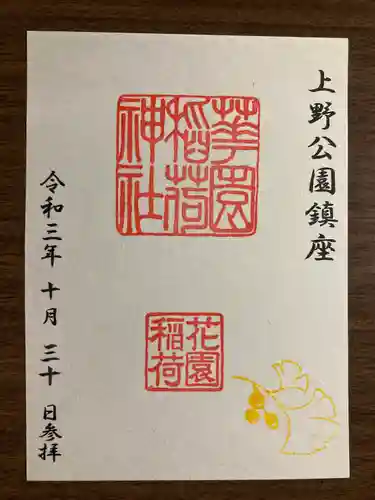 上野公園鎮座
華園
稲荷
神社
花園
稲荷
令和三年十月三十日参拝